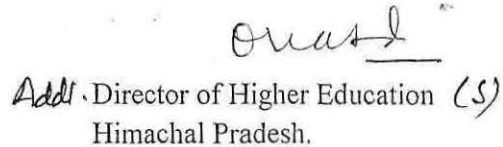 Addl. Director of Higher Education (S)
Himachal Pradesh.